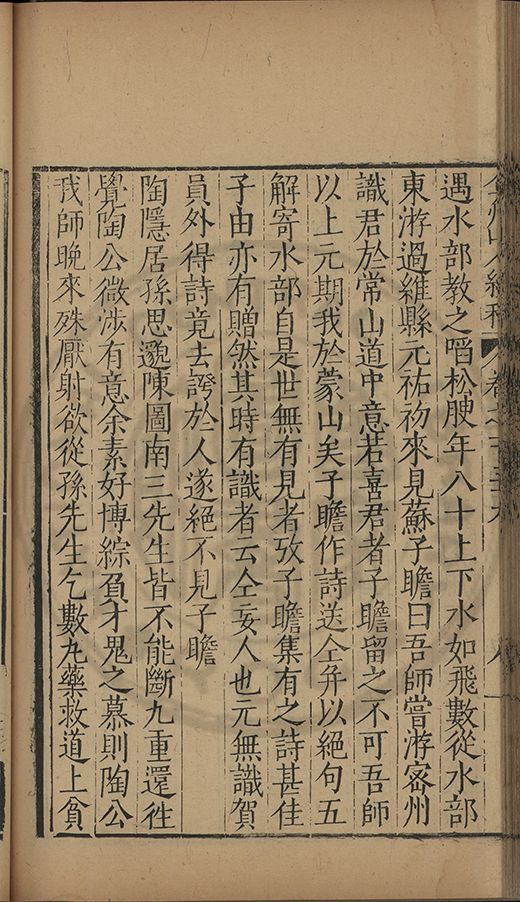 遇水部教之啗松腴年八十上下水如飛數從水部
東游過維縣元祐初來見蘇子瞻曰吾師嘗游宻州
識君於常山道中意若喜君者子瞻留之不可吾師
以上元期我於蒙山矣子瞻作詩送仝并以絕句五
解寄水部自是世無有見者攷子瞻集有之詩甚佳
子由亦有贈然其時有識者云仝妄人也元無識賀
員外得詩竟去誇於人遂絕不見子瞻
陶隱居孫思邈陳圖南三先生皆不能斷九重還徃
覺陶公微涉有意余素好博綜負才鬼之慕則陶公
我師晚來殊厭射欲從孫先生乞數丸藥救道上貧